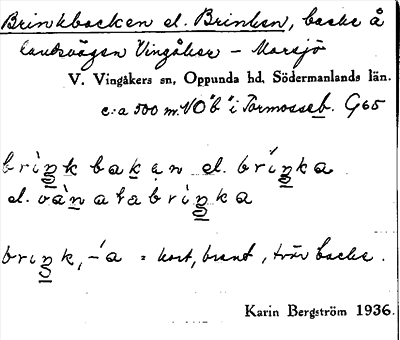 Brinkbacken el. Brinken, backe å
landsvägen Vingåker – Marsjö
V. Vingåkers sn, Oppunda hd, Södermanlands län.
c:a 500 m. VO "b" i Tormosseb. G65
brìŋk bakɐn el. bríŋka
el. vànatabrìŋka
briŋk, -´a = kort, brant, tvär backe.
Karin Bergström 1936.